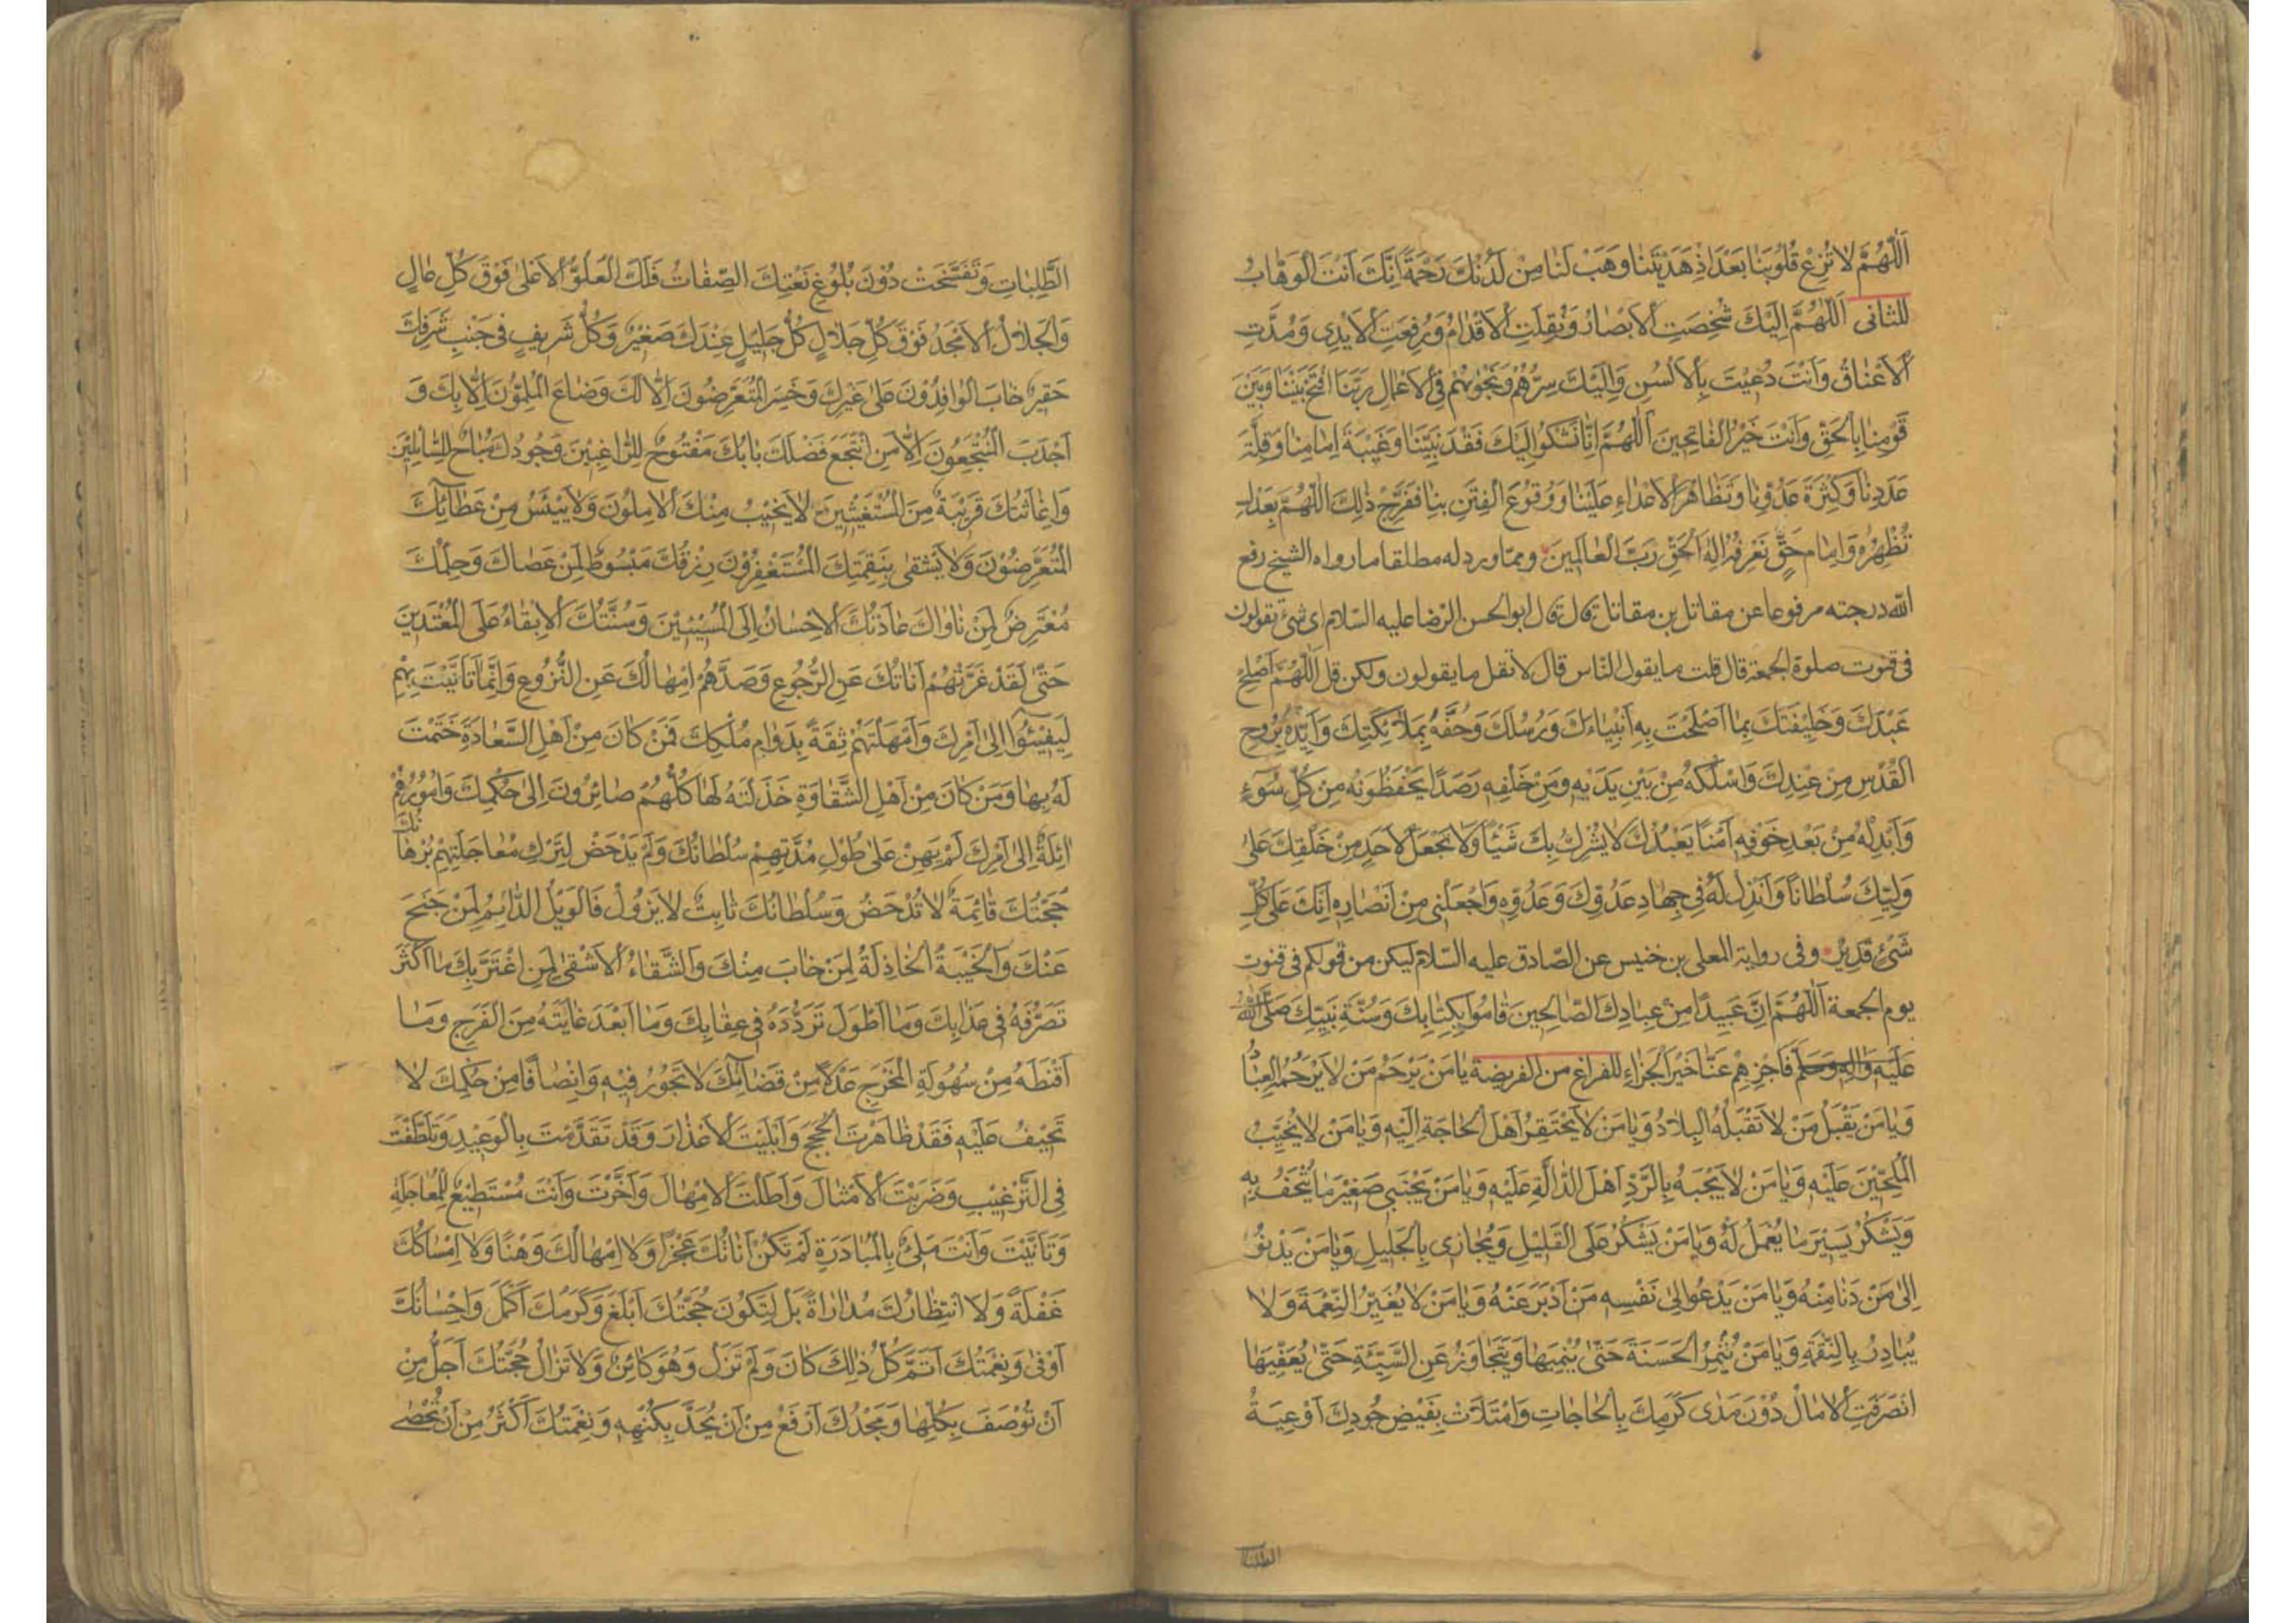 اَللّٰهُمَّ لَا تُزِغْ قُلُوبَنَا بَعْدَ اِذْ هَدَيْتَنَا وَهَبْ لَنَا مِنْ لَدُنْكَ رَحْمَةً اِنَّكَ اَنْتَ الْوَهَّابُ
للثانى اَللّٰهُمَّ اِلَيْكَ شُخِصَتِ الْاَبْصَارُ وَنُقِلَتِ الْاَقْدَامُ وَرُفِعَتِ الْاَيْدِى وَمُدَّتِ
الْاَعْنَاقُ وَاَنْتَ دُعِيْتَ بِالْاَلْسُنِ وَاِلَيْكَ سِرُّهُمْ وَنَجْوٰيهُمْ فِى الْاَعْمَالِ رَبَّنَا افْتَحْ بَيْنَنَا وَبَيْنَ
قَوْمِنَا بِالْحَقِّ وَاَنْتَ خَيْرُ الْفَاتِحِينَ اَللّٰهُمَّ اِنَّا نَشْكُوا اِلَيْكَ فَقْدَ نَبِيِّنَا وَغَيْبَةَ اِمَامِنَا وَقِلَّةَ
عَدَدِنَا وَكَثْرَةَ عَدُوِّنَا وَتَظَاهُرَ الْاَعْدَاءِ عَلَيْنَا وَوُقُوعَ الْفِتَنِ بِنَا فَفَرِّجْ ذٰلِكَ اَللّٰهُمَّ بِعَدْلٍ
تُظْهِرُهُ وَاِمَامِ حَقٍّ نَعْرِفُهُ اِلٰهَ الْحَقِّ رَبَّ الْعَالَمِينَ وممّا ورد له مطلقا ما رواه الشيخ رفع
الله درجته مرفوعا عن مقاتل بن مقاتل قال قال ابو الحسن الرّضا عليه السّلام اى شئ تقولون
فى قنوت صلوة الجمعة قال قلت ما يقول النّاس قال لا تقل ما يقولون ولكن قل اَللّٰهُمَّ اَصْلِحْ
عَبْدَكَ وَخَلِيفَتَكَ بِمَا اَصْلَحْتَ بِهِ اَنْبِيَاءَكَ وَرُسُلَكَ وَحُفَّهُ بِمَلَائِكَتِكَ وَاَيِّدْهُ بِرُوحِ
الْقُدُسِ مِنْ عِنْدِكَ وَاسْلُكْهُ مِنْ بَيْنِ يَدَيْهِ وَمِنْ خَلْفِهِ رَصَدًا يَحْفَظُونَهُ مِنْ كُلِّ سُوءٍ
وَاَبْدِلْهُ مِنْ بَعْدِ خَوْفِهِ اَمْنًا يَعْبُدُكَ لَا يُشْرِكُ بِكَ شَيْئًا وَلَا تَجْعَلْ لِاَحَدٍ مِنْ خَلْقِكَ عَلٰى
وَلِيِّكَ سُلْطَانًا وَائْذَنْ لَهُ فِى جِهَادِ عَدُوِّكَ وَعَدُوِّهِ وَاجْعَلْنِى مِنْ اَنْصَارِهِ اِنَّكَ عَلٰى كُلِّ
شَىْءٍ قَدِيْرٌ وفى رواية المعلى بن خنيس عن الصّادق عليه السّلام ليكن من قولكم فى قنوت
يوم الجمعة اَللّٰهُمَّ اِنَّ عَبِيدًا مِنْ عِبَادِكَ الصَّالِحِينَ قَامُوا بِكِتَابِكَ وَسُنَّةِ نَبِيِّكَ صَلَّى اللّٰهُ
عَلَيْهِ وَاٰلِهِ وَسَلَّمَ فَاجْزِهِمْ عَنَّا خَيْرَ الْجَزَاءِ للفراغ من الفريضة يَا مَنْ يَرْحَمُ مَنْ لَا يَرْحَمُهُ الْعِبَادُ
وَيَا مَنْ يَقْبَلُ مَنْ لَا تَقْبَلُهُ الْبِلَادُ وَيَا مَنْ لَا يَحْتَقِرُ اَهْلَ الْحَاجَةِ اِلَيْهِ وَيَا مَنْ لَا يُخَيِّبُ
الْمُلِحِّيْنَ عَلَيْهِ وَيَا مَنْ لَا يَجْبَهُ بِالرَّدِّ اَهْلَ الدَّالَّةِ عَلَيْهِ وَيَا مَنْ يَجْتَبِى صَغِيْرَ مَا يُتْحَفُ بِهِ
وَيَشْكُرُ يَسِيْرَ مَا يُعْمَلُ لَهُ وَيَا مَنْ يَشْكُرُ عَلَى الْقَلِيْلِ وَيُجَازِى بِالْجَلِيلِ وَيَا مَنْ يَدْنُوا
اِلٰى مَنْ دَنَا مِنْهُ وَيَا مَنْ يَدْعُوا اِلٰى نَفْسِهِ مَنْ اَدْبَرَ عَنْهُ وَيَا مَنْ لَا يُغَيِّرُ النِّعْمَةَ وَلَا
يُبَادِرُ بِالنَّقِمَةِ وَيَا مَنْ يُثْمِرُ الْحَسَنَةَ حَتّٰى يُنْمِيَهَا وَيَتَجَاوَزُ عَنِ السَّيِّئَةِ حَتّٰى يُعَفِّيَهَا
انْصَرَفَتِ الْاٰمَالُ دُوْنَ مَدٰى كَرَمِكَ بِالْحَاجَاتِ وَامْتَلَاَتْ بِفَيْضِ جُودِكَ اَوْعِيَةُ
الطلبات
الطَّلِبَاتِ وَتَفَسَّخَتْ دُوْنَ بُلُوْغِ نَعْتِكَ الصِّفَاتُ فَلَكَ الْعُلُوُّ الْاَعْلٰى فَوْقَ كُلِّ عَالٍ
وَالْجَلَالُ الْاَمْجَدُ فَوْقَ كُلِّ جَلَالٍ كُلُّ جَلِيْلٍ عِنْدَكَ صَغِيْرٌ وَكُلُّ شَرِيفٍ فِى جَنْبِ شَرَفِكَ
حَقِيْرٌ خَابَ الْوَافِدُوْنَ عَلٰى غَيْرِكَ وَخَسِرَ الْمُتَعَرِّضُونَ اِلَّا لَكَ وَضَاعَ الْمُلِمُّوْنَ اِلَّا بِكَ وَ
اَجْدَبَ الْمُنْتَجِعُوْنَ اِلَّا مَنِ انْتَجَعَ فَضْلَكَ بَابُكَ مَفْتُوْحٌ لِلرَّاغِبِيْنَ وَجُودُكَ مُبَاحٌ لِلسَّائِلِيْنَ
وَاِغَاثَتُكَ قَرِيْبَةٌ مِنَ الْمُسْتَغِيْثِيْنَ لَا يَخِيْبُ مِنْكَ الْاٰمِلُوْنَ وَلَا يَيْئَسُ مِنْ عَطَائِكَ
الْمُتَعَرِّضُوْنَ وَلَا يَشْقٰى بِنَقِمَتِكَ الْمُسْتَغْفِرُوْنَ رِزْقُكَ مَبْسُوْطٌ لِمَنْ عَصَاكَ وَحِلْمُكَ
مُعْتَرِضٌ لِمَنْ نَاوَاكَ عَادَتُكَ الْاِحْسَانُ اِلَى الْمُسِيْئِيْنَ وَسُنَّتُكَ الْاِبْقَاءُ عَلَى الْمُعْتَدِيْنَ
حَتّٰى لَقَدْ غَرَّتْهُمْ اَنَاتُكَ عَنِ الرُّجُوعِ وَصَدَّهُمْ اِمْهَالُكَ عَنِ النُّزُوعِ وَاِنَّمَا تَاَنَّيْتَ بِهِمْ
لِيَفِيْئُوْا اِلٰى اَمْرِكَ وَاَمْهَلْتَهُمْ ثِقَةً بِدَوَامِ مُلْكِكَ فَمَنْ كَانَ مِنْ اَهْلِ السَّعَادَةِ خَتَمْتَ
لَهُ بِهَا وَمَنْ كَانَ مِنْ اَهْلِ الشَّقَاوَةِ خَذَلْتَهُ لَهَا كُلُّهُمْ صَائِرُونَ اِلٰى حُكْمِكَ وَاُمُوْرُهُمْ
اٰئِلَةٌ اِلٰى اَمْرِكَ لَمْ يَهِنْ عَلٰى طُوْلِ مُدَّتِهِمْ سُلْطَانُكَ وَلَمْ يَدْحَضْ لِتَرْكِ مُعَاجَلَتِهِمْ بُرْهَانُكَ
حُجَّتُكَ قَائِمَةٌ لَا تُدْحَضُ وَسُلْطَانُكَ ثَابِتٌ لَا يَزُوْلُ فَالْوَيْلُ الدَّائِمُ لِمَنْ جَنَحَ
عَنْكَ وَالْخَيْبَةُ الْخَاذِلَةُ لِمَنْ خَابَ مِنْكَ وَالشَّقَاءُ الْاَشْقٰى لِمَنِ اغْتَرَّ بِكَ مَا اَكْثَرَ
تَصَرُّفَهُ فِى عَذَابِكَ وَمَا اَطْوَلَ تَرَدُّدَهُ فِى عِقَابِكَ وَمَا اَبْعَدَ غَايَتَهُ مِنَ الْفَرَجِ وَمَا
اَقْنَطَهُ مِنْ سُهُوْلَةِ الْمَخْرَجِ عَدْلًا مِنْ قَضَائِكَ لَا تَجُوْرُ فِيْهِ وَاِنْصَافًا مِنْ حُكْمِكَ لَا
تَحِيْفُ عَلَيْهِ فَقَدْ ظَاهَرْتَ الْحُجَجَ وَاَبْلَيْتَ الْاَعْذَارَ وَقَدْ تَقَدَّمْتَ بِالْوَعِيْدِ وَتَلَطَّفْتَ
فِى التَّرْغِيْبِ وَضَرَبْتَ الْاَمْثَالَ وَاَطَلْتَ الْاِمْهَالَ وَاَخَّرْتَ وَاَنْتَ مُسْتَطِيْعٌ لِلْمُعَاجَلَةِ
وَتَاَنَّيْتَ وَاَنْتَ مَلِىٌّ بِالْمُبَادَرَةِ لَمْ تَكُنْ اَنَاتُكَ عَجْزًا وَلَا اِمْهَالُكَ وَهْنًا وَلَا اِمْسَاكُكَ
غَفْلَةً وَلَا انْتِظَارُكَ مُدَارَاةً بَلْ لِتَكُوْنَ حُجَّتُكَ اَبْلَغَ وَكَرَمُكَ اَكْمَلَ وَاِحْسَانُكَ
اَوْفٰى وَنِعْمَتُكَ اَتَمَّ كُلُّ ذٰلِكَ كَانَ وَلَمْ تَزَلْ وَهُوَ كَائِنٌ وَلَا تَزَالُ حُجَّتُكَ اَجَلُّ مِنْ
اَنْ تُوْصَفَ بِكُلِّهَا وَمَجْدُكَ اَرْفَعُ مِنْ اَنْ يُحَدَّ بِكُنْهِهِ وَنِعْمَتُكَ اَكْثَرُ مِنْ اَنْ تُحْصٰى